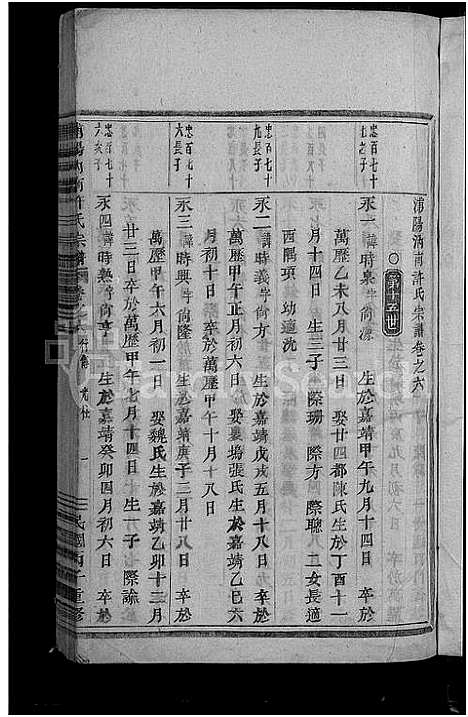 浦陽汭南許氏宗譜卷之六
第十五世
忠百七十
永一 諱時泉 字尙源 生於嘉靖甲午九月十四日 卒於
萬歷乙未八月廿三日 娶廿四都陳氏生於丁酉十一
月十四日 生三子 際珊 際方 際聯 二女長適
西隅項 幼適沈
忠百七十
九長子
永二 諱時義 字尙方 生於嘉靖戊戌五月十八日 卒於
萬歷甲午正月初六日 娶襄塢張氏生於嘉靖乙巳六
月初十日 卒於萬歷甲午十月十八日
忠百七十
六長子
永三 諱時興 字尙隆 生於嘉靖庚子三月廿八日 卒於
萬歷甲午六月初一日 娶魏氏生於嘉靖乙卯十二月
廿三日 卒於萬歷甲午七月十四日 生一子 際諭
忠百七十
六次子
永四 諱時熱 字尙亨 生於嘉靖癸卯四月初六日 卒於
浦陽汭南許氏宗譜 卷之六 行傳 一 民國丙子重修